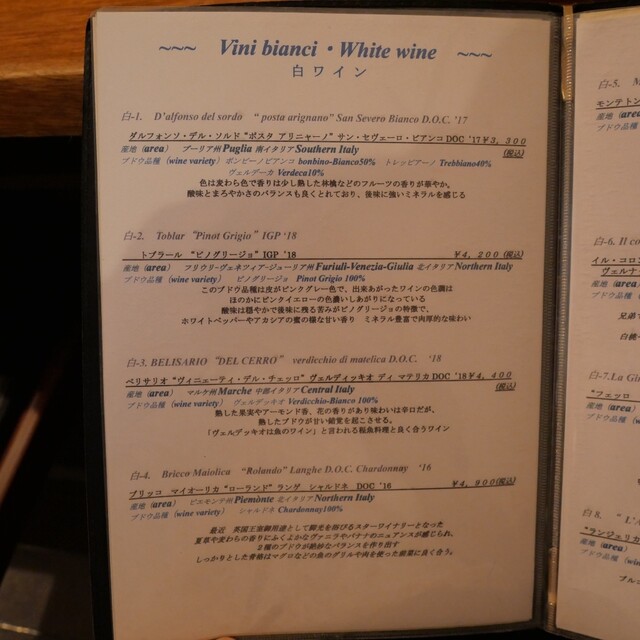 ~~~ Vini bianci・White wine ~~~
白ワイン
白-1. D'alfonso del sordo “ posta arignano” San Severo Bianco D.O.C. '17
ダルフォンソ・デル・ソルド“ポスタ アリニャーノ” サン・セヴェーロ・ビアンコ DOC '17 ¥3,300
産地 (area) プーリア州 Puglia 南イタリア Southern Italy (税込)
ブドウ品種 (wine variety) ボンビーノビアンコ bonbino-Bianco50% トレッビアーノ Trebbiano40%
ヴェルデーカ Verdeca10%
色は麦わら色で香りは少し熟した林檎などのフルーツの香りが華やか。
酸味とまろやかさのバランスも良くとれており、後味に強いミネラルを感じる
白-2. Toblar “Pinot Grigio” IGP '18
トブラール “ピノグリージョ” IGP '18 ¥4,200 (税込)
産地 (area) フリウリ・ヴェネツィア・ジューリア州 Furiuli-Venezia-Giulia 北イタリア Northern Italy
ブドウ品種 (wine variety) ピノグリージョ Pinot Grigio 100%
このブドウ品種は皮がピンクグレー色で、出来あがったワインの色調は
ほのかにピンクイエローの色濃いしあがりになっている
酸味は穏やかで後味に残る苦みがピノグリージョの特徴で、
ホワイトペッパーやアカシアの蜜の様な甘い香り ミネラル豊富で肉厚的な味わい
白-3. BELISARIO “DEL CERRO” verdicchio di matelica D.O.C. '18
ベリサリオ “ヴィニェーティ・デル・チェッロ” ヴェルディッキオ ディ マテリカ DOC '18 ¥4,400
産地 (area) マルケ州 Marche 中部イタリア Central Italy (税込)
ブドウ品種 (wine variety) ヴェルディッキオ Verdicchio-Bianco 100%
熟した果実やアーモンド香、花の香りがあり味わいは辛口だが、
熟したブドウが甘い錯覚を起こさせる。
「ヴェルデッキオは魚のワイン」と言われる程魚料理と良く合うワイン
白-4. Bricco Maiolica “Rolando” Langhe D.O.C. Chardonnay '16
ブリッコ マイオーリカ “ローランド” ランゲ シャルドネ DOC '16 ¥4,900 (税込)
産地 (area) ピエモンテ州 Piemònte 北イタリア Northern Italy
ブドウ品種 (wine variety) シャルドネ Chardonnay100%
最近 英国王室御用達として脚光を浴びるスターワイナリーとなった
夏草や麦わらの香りにふくよかなヴァニラやバナナのニュアンスが感じられ、
2種のブドウが絶妙なバランスを作り出す
しっかりとした骨格はマグロなどの魚のグリルや肉を使った前菜に良く合う。
白-5. M
モンテトン
産地 (area)
ブドウ品種 (
白-6. Il co
イル・コロン
ヴェルナー
産地 (area)
ブドウ品種 (
兄弟
白桃
白-7. La Gi
“フェッロ
産地 (area)
ブドウ品種 (wi
白 8. “ L'A
“ランジェリカ
産地 (area)
ブドウ品種 (win